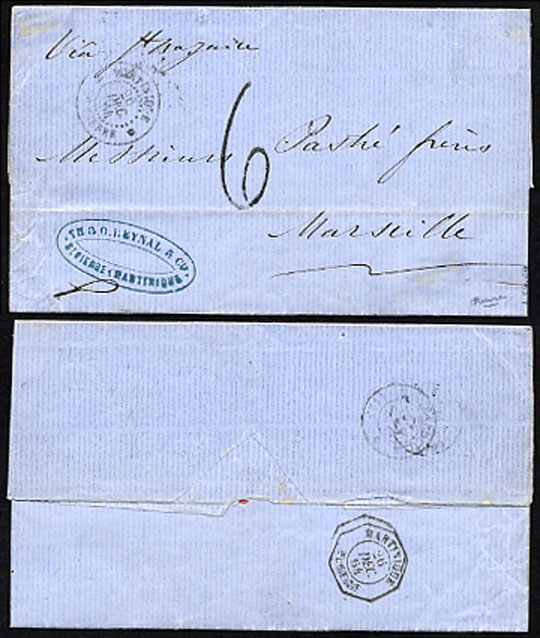 Via St Nazaire
MARTINIQUE
26
DEC
68
6
Messieurs Pastré frères
Marseille
TH & O. LEYNAL & CO
ST PIERRE MARTINIQUE
MARTINIQUE
26
DEC
68